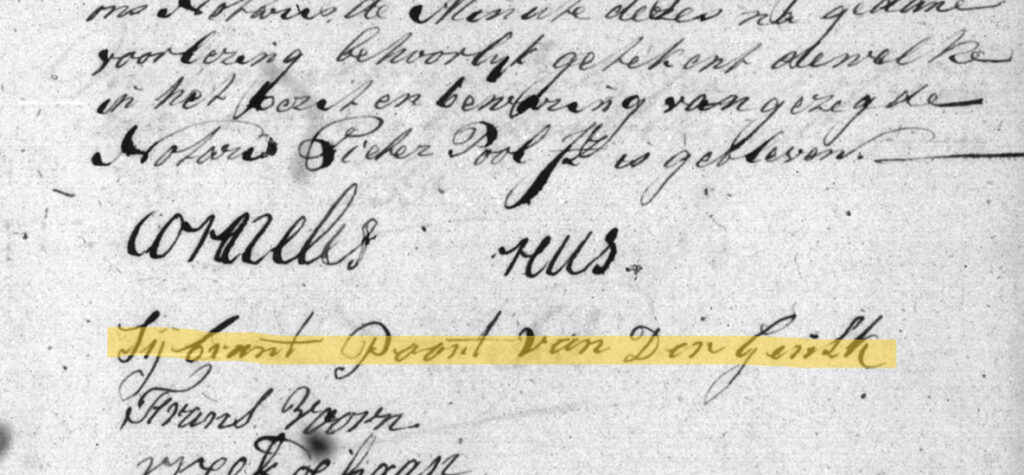 ons Notaris de Minute dezes na gedane
voorlezing behoorlyk getekent dewelke
in het bezit en bewaring van gezegde
Notaris Pieter Pool Jz is gebleven.
cornelis reus.
Sijbrant Poort Van Der
Frans Voorn
de haan